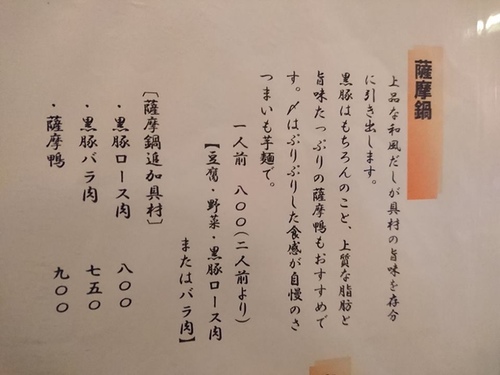 薩摩鍋
上品な和風だしが具材の旨味を存分
に引き出します。
黒豚はもちろんのこと、上質な脂肪と
旨味たっぷりの薩摩鴨もおすすめで
す。〆はぷりぷりした食感が自慢のさ
つまいも芋麺で。
一人前 八〇〇(二人前より)
【豆腐・野菜・黒豚ロース肉
またはバラ肉】
〔薩摩鍋追加具材〕
・黒豚ロース肉 八〇〇
・黒豚バラ肉 七五〇
・薩摩鴨 九〇〇